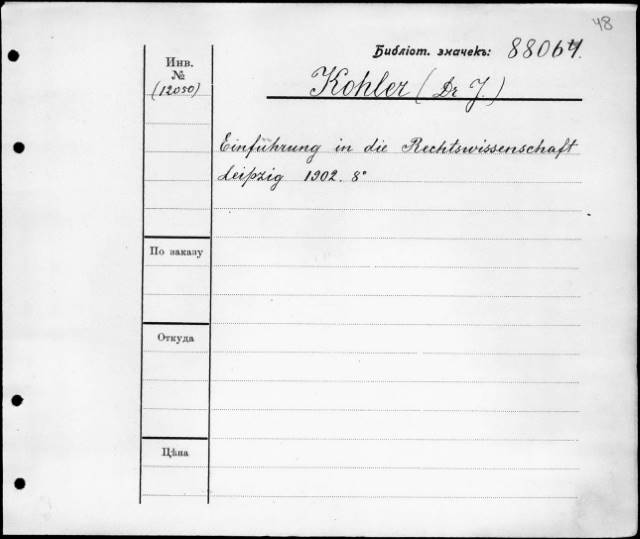 48
Библіот. значекъ: 88064.
Инв.
№
(12050)
Kohler (Dr J.)
Einführung in die Rechtswissenschaft
Leipzig 1902. 8°
По заказу
Откуда
Цѣна